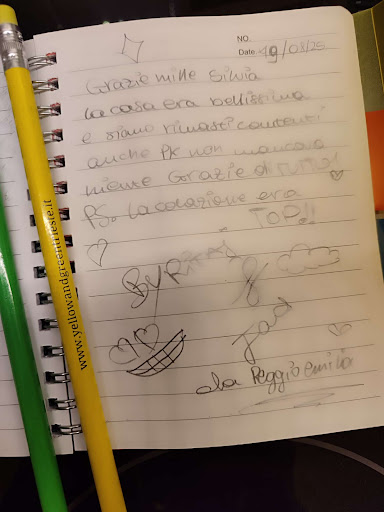 NO.
Date 19/08/25
Grazie mille Silvia
La casa era bellissima
e siamo rimasti contenti
anche Pk non mancava
niente Grazie di TUTTO!
PS. La colazione era
TOP!!
By
&
da Reggio emilia
www.yellowandgreentrieste.it